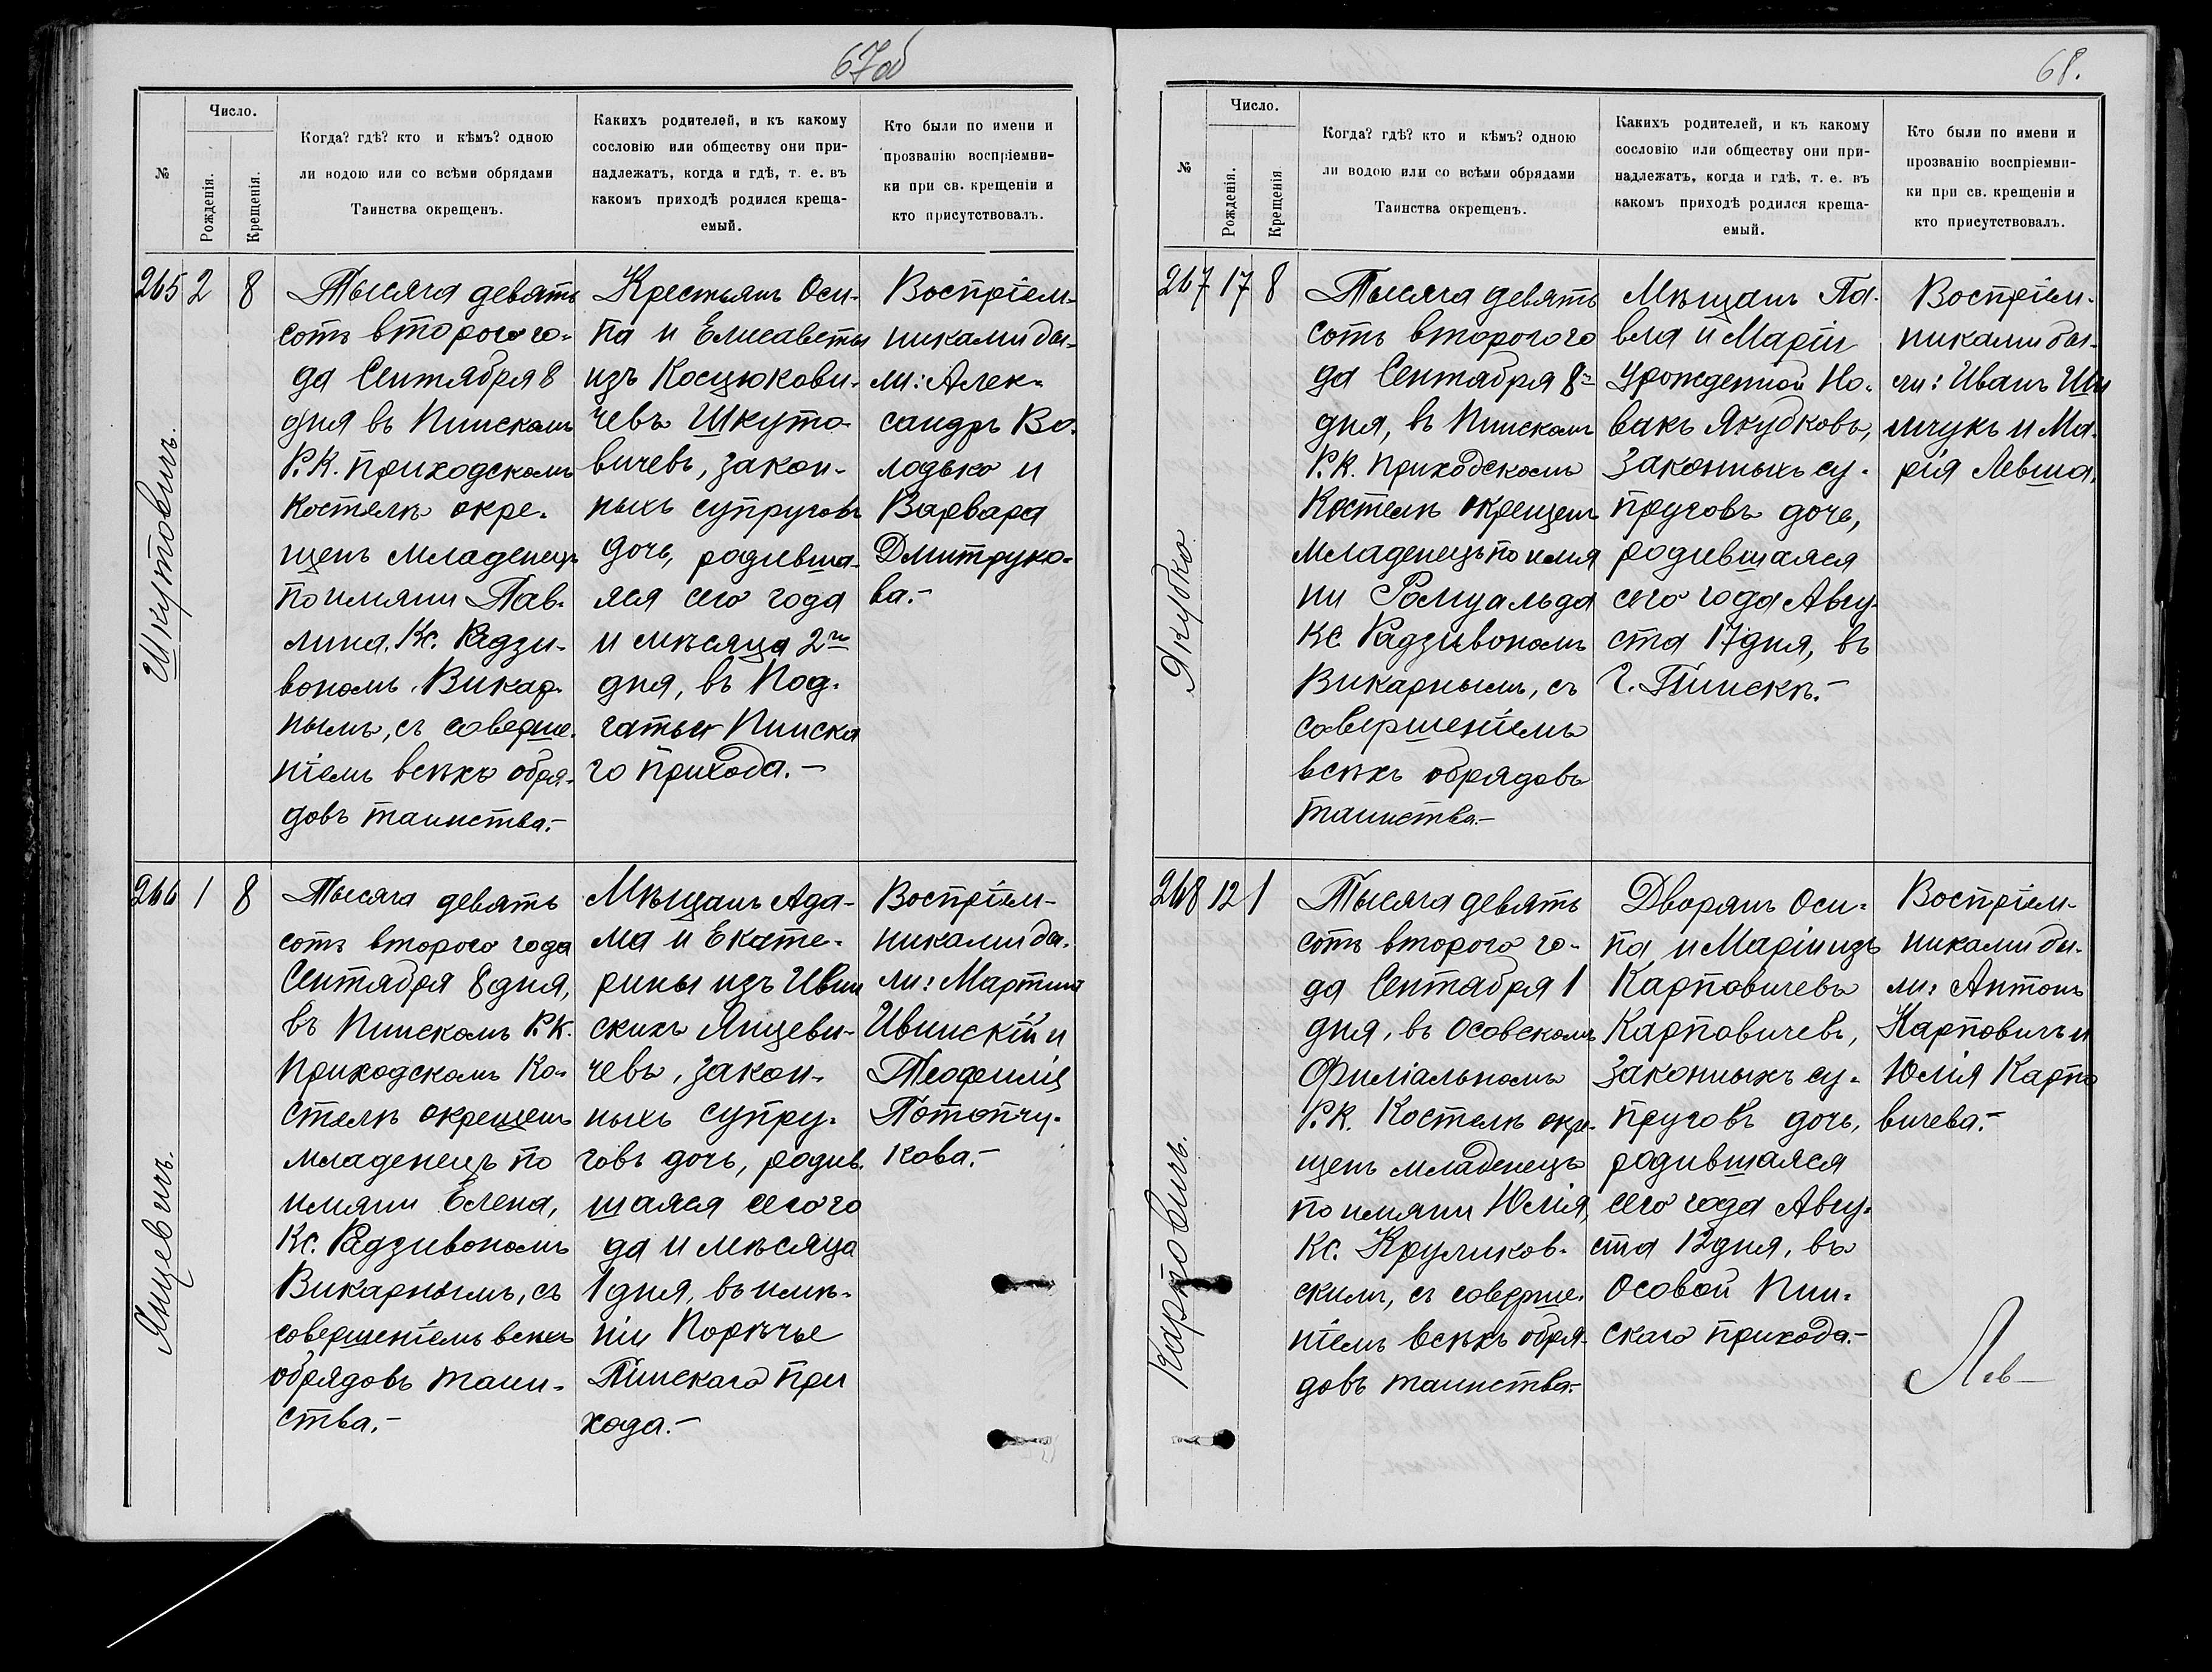 67об
№
Число.
Рожденія.
Крещенія.
Когда? гдѣ? кто и кѣмъ? одною
ли водою или со всѣми обрядами
Таинства окрещенъ.
Какихъ родителей, и къ какому
сословію или обществу они при-
надлежатъ, когда и гдѣ, т. е. въ
какомъ приходѣ родился креща-
емый.
Кто были по имени и
прозванію воспріемни-
ки при св. крещеніи и
кто присутствовалъ.
Шкутовичъ.
265
2
8
Тысяча девять
сотъ второго го-
да Сентября 8
дня въ Пинскомъ
Р.К. приходскомъ
Костелѣ окре-
щенъ младенецъ
по имяни Пав-
лина. Кс. Радзи-
вономъ. Викар-
нымъ, съ соверше-
ніемъ всѣхъ обря-
довъ таинства.-
Крестьянъ Оси-
па и Елисаветы
изъ Косцюкови-
чевъ Шкуто-
вичевъ, закон-
ныхъ супруговъ
дочь, родивша-
яся сего года
и мѣсяца 2го
дня, въ Под-
гатьи Пинска
го прихода.-
Воспріем-
никами бы-
ли: Алек-
сандръ Во-
лодько и
Варвара
Дмитруко-
ва.-
Янцевичъ.
266
1
8
Тысяча девять
сотъ второго года
Сентября 8 дня,
въ Пинскомъ Р.К.
Приходскомъ Ко-
стелѣ окрещенъ
младенецъ по
имяни Елена,
Кс. Радзивономъ
Викарнымъ, съ
совершеніемъ всѣхъ
обрядовъ таин-
ства.-
Мѣщанъ Ада-
ма и Екате-
рины изъ Ивин
скихъ Янцеви-
чевъ, закон-
ныхъ супру-
говъ дочь, родив-
шаяся сего го
да и мѣсяца
1 дня, въ имѣ-
ніи Порѣчье
Пинскаго при
хода.-
Воспріем-
никами бы-
ли: Мартинъ
Ивинскій и
Теофилія
Потопчу-
кова.-
68.
№
Число.
Рожденія.
Крещенія.
Когда? гдѣ? кто и кѣмъ? одною
ли водою или со всѣми обрядами
Таинства окрещенъ.
Какихъ родителей, и къ какому
сословію или обществу они при-
надлежатъ, когда и гдѣ, т. е. въ
какомъ приходѣ родился креща-
емый.
Кто были по имени и
прозванію воспріемни-
ки при св. крещеніи и
кто присутствовалъ.
Якубко
267
17
8
Тысяча девять
сотъ второго го
да Сентября 8го
дня, въ Пинскомъ
Р.К. Приходскомъ
Костелѣ окрещенъ
младенецъ по имя
ни Ромуальда
Кс. Радзивономъ
Викарнымъ, съ
совершеніемъ
всѣхъ обрядовъ
таинства.-
Мѣщанъ Па-
вла и Маріи
урожденной Но-
вакъ Якубковъ,
законныхъ су-
пруговъ дочь,
родившаяся
сего года Авгу-
ста 17 дня, въ
г. Пинскѣ.-
Воспріем-
никами бы-
ли: Иванъ Ши
мчукъ и Ма-
рія Левша.
Карповичъ.
268
12
1
Тысяча девять
сотъ второго го-
да Сентября 1
дня, въ Осовскомъ
Филіальномъ
Р.К. Костелѣ окре-
щенъ младенецъ
по имяни Юлія,
Кс. Круликов-
скимъ, съ соверше-
ніемъ всѣхъ обря-
довъ таинства.-
Дворянъ Оси-
па и Маріи изъ
Карповичевъ
Карповичевъ,
законныхъ су-
пруговъ дочь,
родившаяся
сего года Авгу-
ста 12 дня, въ
Осовой Пин-
скаго прихода.-
Воспріем-
никами бы-
ли: Антонъ
Карповичъ и
Юлія Карпо
вичева.-